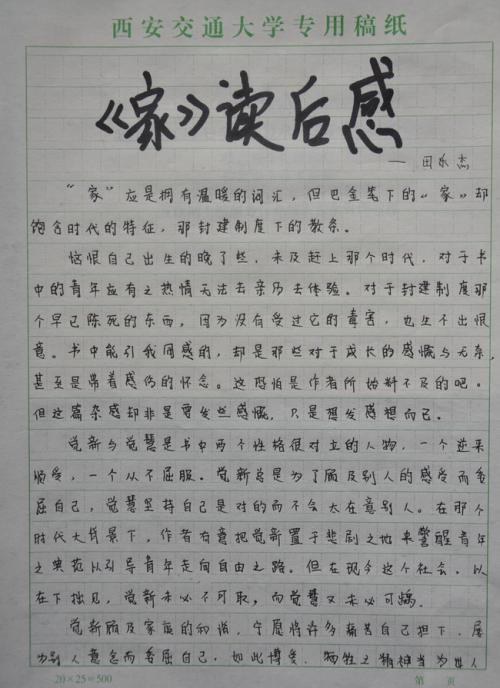 西安交通大学专用稿纸
《家》读后感
— 田永杰
“家”应是拥有温暖的词汇，但巴金笔下的“家”却
饱含时代的特征，那封建制度下的教条。
恼恨自己出生的晚了些，未及赶上那个时代，对于书
中的青年应有之热情无法去亲历去体验。对于封建制度那
个早已陈死的东西，因为没有受过它的毒害，也生不出恨
意。书中能引我同感的，却是那些对于成长的感慨与无奈，
甚至是带着感伤的怀念。这恐怕是作者所始料不及的吧。
但这篇杂感却非是要发些感慨，只是想发感想而已。
觉新与觉慧是书中两个性格很对立的人物，一个逆来
顺受，一个从不屈服。觉新总是为了顾及别人的感受而委
屈自己，觉慧坚持自己是对的而不会太在意别人。在那个
时代大背景下，作者有意把觉新置于悲剧之地来警醒青年
之典范以引导青年走向自由之路。但在现今这个社会，以
在下拙见，觉新未必不可取，而觉慧又未必可
觉新顾及家庭的和谐，宁愿将许多痛苦自己担下，屡
为别人意念而委屈自己，如此博爱、牺牲之精神当为世人
20×25=500
第 页